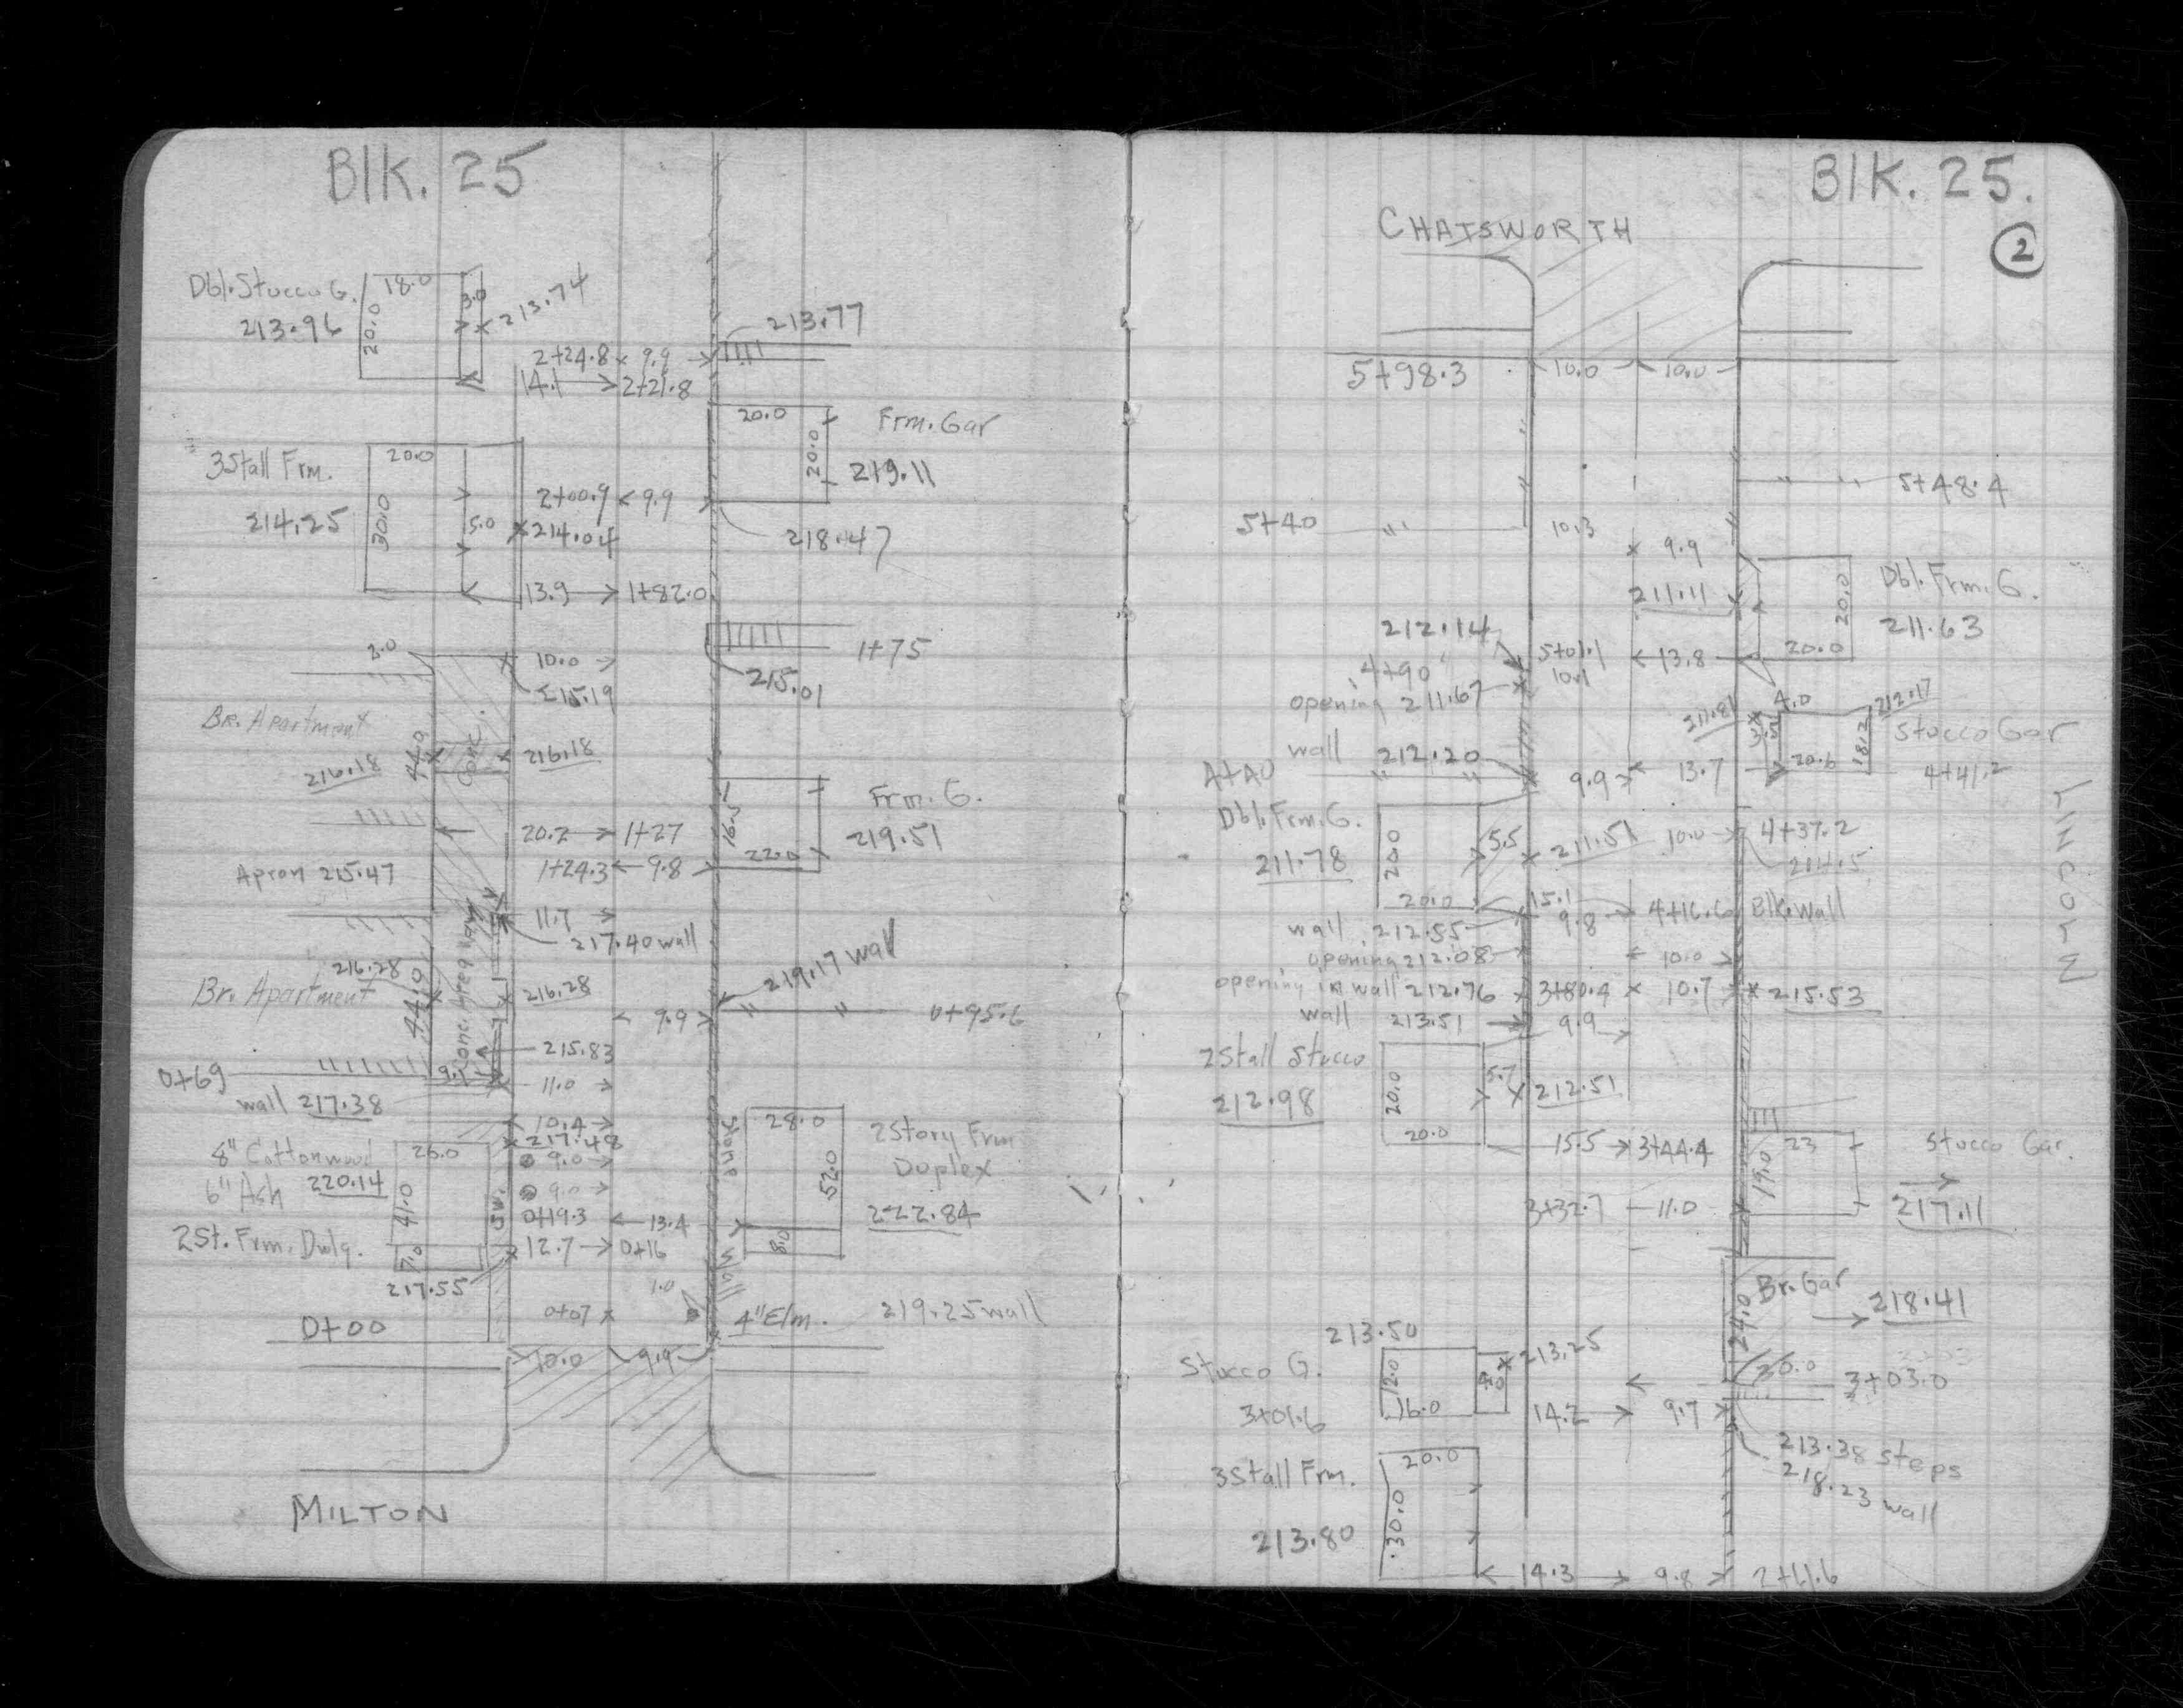 Blk. 25
Dbl. Stucco G. 18.0 3.0 213.74
213.96 20.0
213.77
2+24.8 9.9
14.1 2+21.8
20.0 Frm. Gar
20.0 219.11
3Stall Frm. 20.0
214.25 30.0 5.0 214.04
2+00.9 9.9
218.47
13.9 1+82.0
1+75
215.01
10.0
215.19
Br. Apartment
216.18 44.0 Conc. 216.18
Frm. G.
219.51 16.5 22.0
20.2 1+27
1+24.3 9.8
Apron 215.47
11.7
217.40 wall
219.17 wall
Br. Apartment 216.28 44.0 216.28
9.9 0+95.6
215.83
0+69 9.1 11.0
wall 217.38
10.4
217.48
8" Cottonwood 26.0 9.0
6" Ash 220.14 41.0 9.0
2St. Frm. Dwlg. 7.0
Stone Wall
28.0 2Story Frm
52.0 Duplex
222.84
8.0
0+19.3 13.4
12.7 0+16
217.55
1.0
0+07 4" Elm. 219.25 wall
0+00
10.0 9.9
MILTON
Blk. 25.
2
CHATSWORTH
5+98.3 10.0 10.0
5+48.4
5+40 10.3
9.9
211.11
Dbl. Frm. G.
211.63 20.0 20.0
212.14 5+01.1 13.8
4+90 10.1
opening 211.67
wall 212.20
211.81 4.0 212.17
Stucco Gar
20.6 18.2 4+41.2
4+40 9.9 13.7
Dbl. Frm. G. 5.5 211.51 10.0 4+37.2
211.78 20.0
20.0 15.1
9.8 4+16.6 Blk. Wall
wall 212.55
opening 212.08 10.0
opening in wall 212.76 3+80.4 10.7 215.53
wall 213.51 9.9
2Stall Stucco 5.7
212.98 20.0 212.51
20.0 15.5 3+44.4
23 Stucco Gar.
19.0 217.11
3+32.7 11.0
Br. Gar
24.0 218.41
213.50
213.25
Stucco G. 12.0 20.0 3+03.0
3+01.6 16.0 14.2 9.7
213.38 steps
218.23 wall
3Stall Frm. 20.0
213.80 30.0
14.3 9.8
LINCOLN